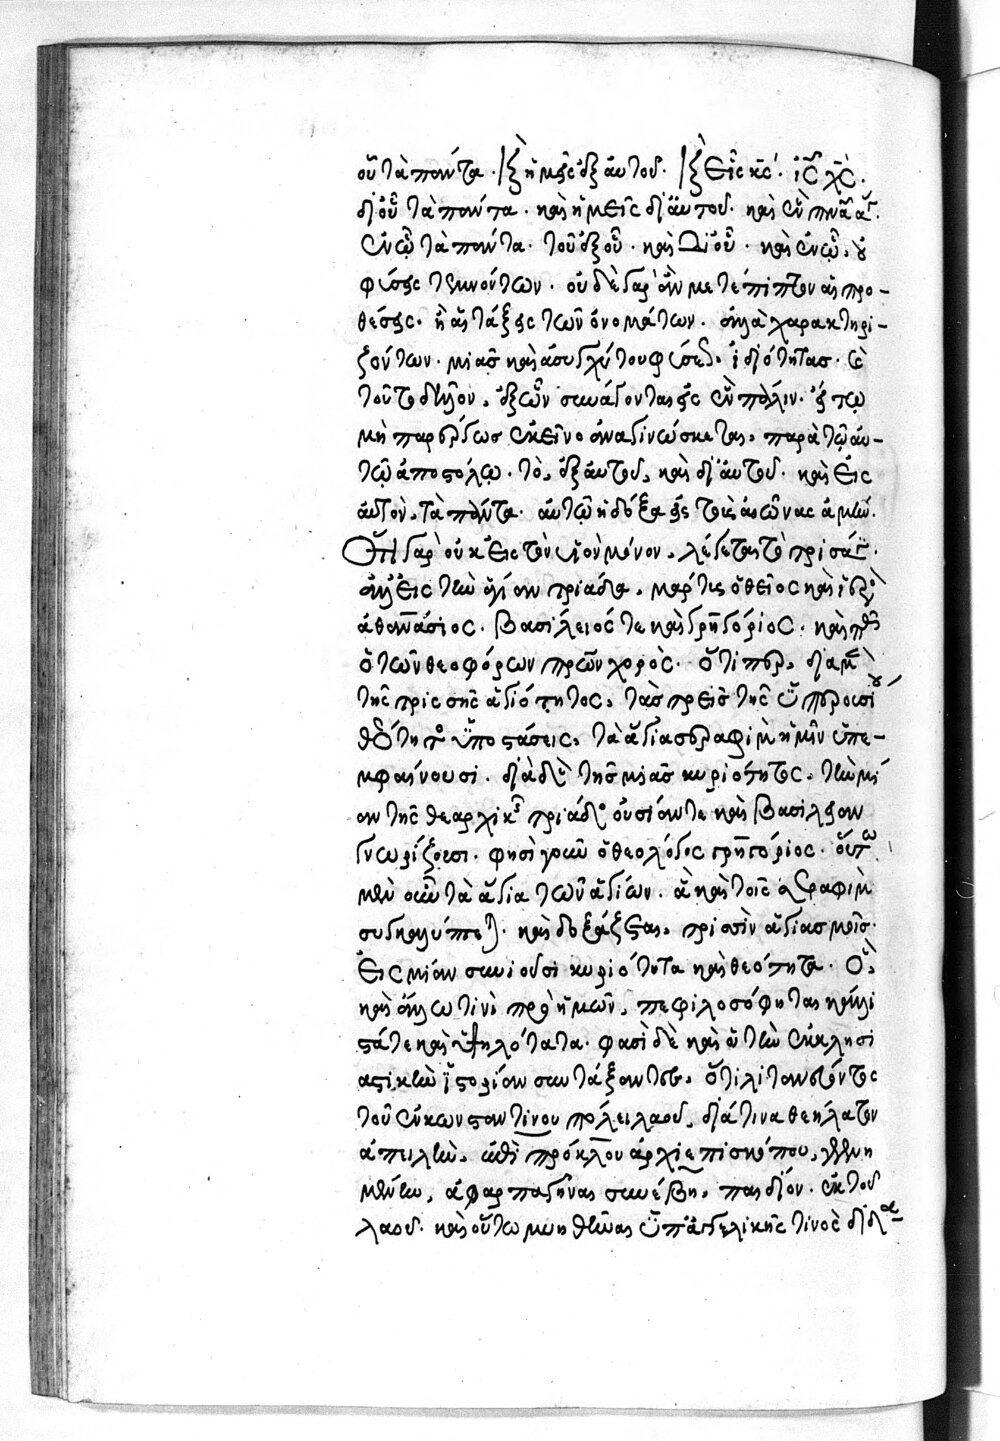 οὗ τὰ πάντα· καὶ ἡμεῖς ἐξ αὐτοῦ· καὶ εἷς κς· ις χς·
δι' οὗ τὰ πάντα· καὶ ἡμεῖς δι' αὐτοῦ· καὶ ἓν πνα ἅγ.
ἐν ᾧ τὰ πάντα· τοῦ ἐξ οὗ· καὶ δι' οὗ· καὶ ἐν ᾧ, οὐ
φύσεις τεμνόντων· οὐδὲ γὰρ ἂν μετέπιπτον αἱ προ-
θέσεις· ἢ αἱ τάξεις τῶν ὀνομάτων. ἀλλὰ χαρακτηρι-
ζόντων· μιᾶς καὶ ἀσυγχύτου φύσεως, ἰδιότητας· καὶ
τοῦτο δῆλον, ἐξ ὧν συνάγονται εἰς ἓν πάλιν· εἴ τῳ
μὴ παρέργως ἐκεῖνο ἀναγινώσκεται, παρὰ τῷ αὐ-
τῷ ἀποστόλῳ· τὸ, ἐξ αὐτοῦ, καὶ δι' αὐτοῦ· καὶ εἰς
αὐτὸν, τὰ πάντα· αὐτῷ ἡ δόξα εἰς τοὺς αἰῶνας ἀμήν.
Ὅτι γὰρ οὐκ εἰς τὸν υἱὸν μόνον, λέγεται τὸ τρισάγ.
ἀλλ' εἰς τὴν ἁγίαν τριάδα, μάρτυς ὁ θεῖος καὶ ἱερὸς
ἀθανάσιος· βασίλειός τε καὶ γρηγόριος· καὶ πᾶς
ὁ τῶν θεοφόρων πρων χορὸς· ὅτι περ, διὰ μὲν
τῆς τρισσῆς ἁγιότητος, τὰς τρεῖς τῆς ὑπερουσίου
θεότητος ὑποστάσεις, τὰ ἅγια σεραφὶμ ἡμῖν ὑπε-
μφαίνουσι. διὰ δὲ τῆς μιᾶς κυριότητος, τὴν μί
αν τῆς θεαρχικῆς τριάδος οὐσίαν τε καὶ βασιλείαν
γνωρίζουσι. φησὶ γοῦν ὁ θεολόγος γρηγόριος· οὕτω
μὲν οὖν τὰ ἅγια τῶν ἁγίων. ἃ καὶ τοῖς σεραφὶμ
συγκαλύπτεται· καὶ δοξάζεται, τρισὶν ἁγιασμοῖς·
εἰς μίαν συνιοῦσι κυριότητα καὶ θεότητα· ὃ,
καὶ ἄλλῳ τινὶ πρὸ ἡμῶν, πεφιλοσόφηται κάλλι
στά τε καὶ ὑψηλότατα· φασὶ δὲ καὶ οἱ τὴν ἐκκλησι
αστικὴν ἱστορίαν συντάξαντες. ὅτι λιτανεύοντος
τοῦ ἐν κωνσταντίνου πόλει λαοῦ, διά τινα θεήλατον
ἀπειλὴν, ἐπὶ πρόκλου ἀρχιεπισκόπου, γεγενη
μένην, ἁρπαγῆναι συνέβη, παιδίον· ἐκ τοῦ
λαοῦ· καὶ οὕτω μυηθῆναι ὑπ' ἀγγελικῆς τινὸς διδα-